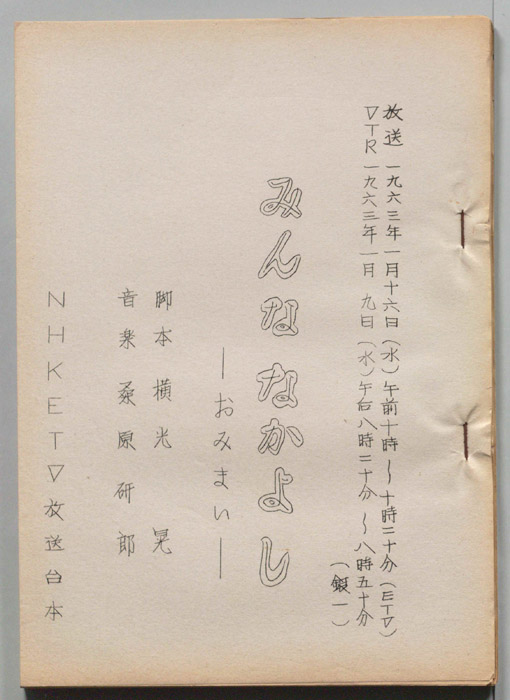 放送 一九六三年一月十六日(水)午前十時～十時二十分(ETV)
VTR 一九六三年一月 九日(水)午后八時二十分 ～八時五十分
(銀一)
みんななかよし
―おみまい―
脚本 横光 晃
音楽 桑原研郎
NHKETV放送台本